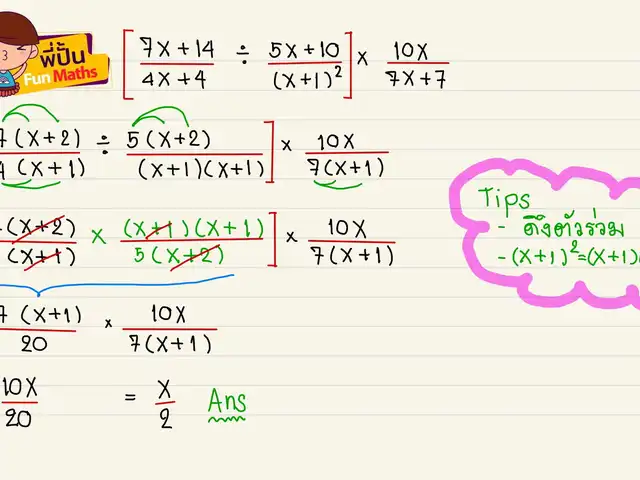 พี่ปั้น
Fun Maths
[ (7x+14)/(4x+4) ÷ (5x+10)/(x+1)² ] × 10x/(7x+7)
7(x+2)/4(x+1) ÷ 5(x+2)/(x+1)(x+1) ] × 10x/7(x+1)
(x+2)/(x+1) × (x+1)(x+1)/5(x+2) ] × 10x/7(x+1)
7(x+1)/20 × 10x/7(x+1)
10x/20 = x/2 Ans
Tips
- ดึงตัวร่วม
- (x+1)²=(x+1)(